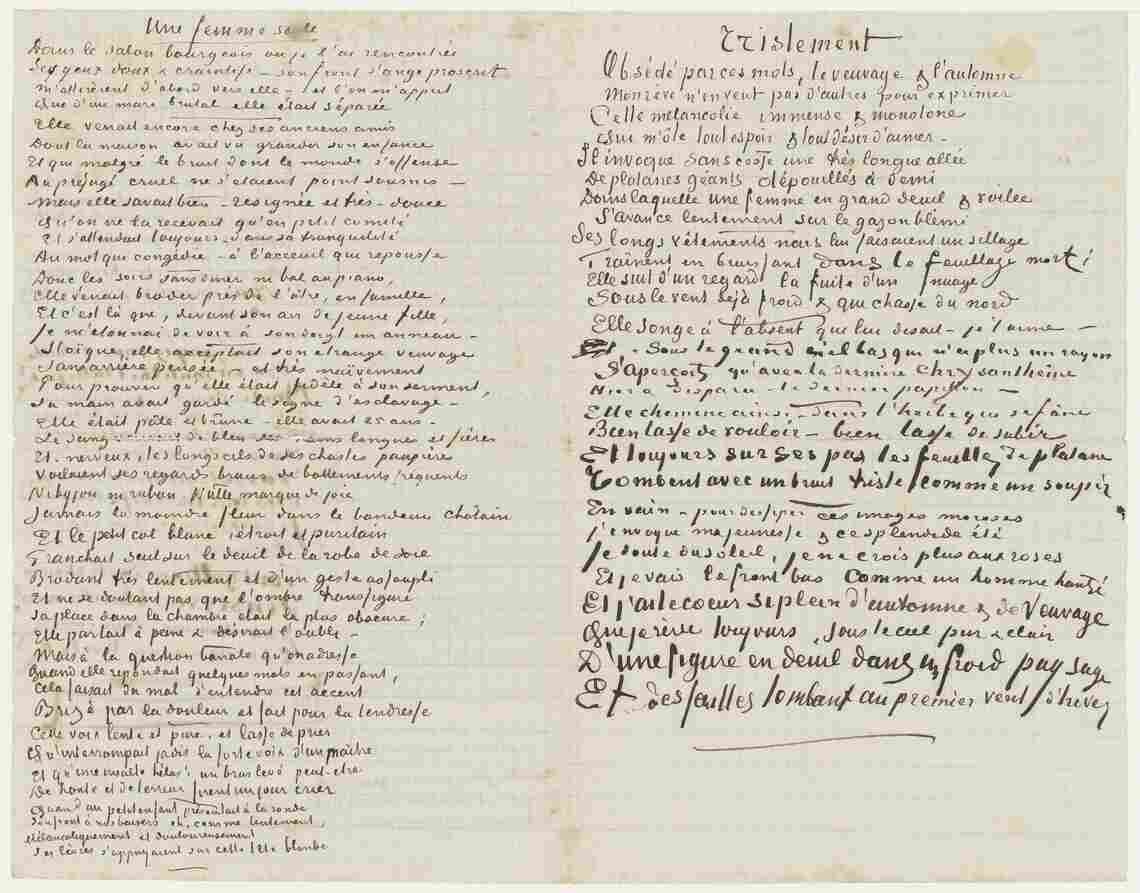 Une femme seule
Dans le salon bourgeois ou je l'ai rencontrée
Ses yeux doux & craintifs - son front d'ange proscrit
m'attirèrent d'abord vers elle - et l'on m'apprit
Que d'un mari brutal elle était séparée
Elle venait encore chez ses anciens amis
Dont la maison avait vu grandir son enfance
Et qui malgré le bruit dont le monde s'offense
Au préjugé cruel ne s'étaient point soumis -
Mais elle savait bien - résignée et très-douce
Qu'on ne la recevait qu'en petit comité
Et s'attendait toujours - dans sa tranquilité
Au mot qui congédie - à l'acceuil qui repousse
Donc les soirs sans diner ni bal au piano,
Elle venait broder près de l'âtre, en famille,
Et c'est là que, devant son air de jeune fille,
Je m'étonnai de voir à son doigt un anneau -
Stoïque, elle acceptait son étrange veuvage
Sans arrière pensée - et très naïvement
Pour prouver qu'elle était fidèle à son serment,
Sa main avait gardé le signe d'esclavage -
Elle était pâle et brune - elle avait 25 ans -
Le sang de bleu ses mains longues et fières
Et, nerveux, les longs cils de ses chastes paupières
Voilaient ses regards bruns de battements fréquents
Ni bijou ni ruban. Nulle marque de joie
Jamais la moindre fleur dans le bandeau châtain
Et le petit col blanc étroit et puritain
Tranchait seul sur le deuil de la robe de soie
Brodant très lentement et d'un geste assoupli
Et ne se doutant pas que l'ombre transfigure
Sa place dans la chambre était la plus obscure ;
Elle parlait à peine & désirait l'oubli -
Mais à la question banale qu'on adresse
Quand elle répondait quelques mots en passant,
Cela faisait du mal d'entendre cet accent
Brisé par la douleur et fait pour la tendresse
Cette voix lente et pure, et lasse de prier
Qu'interrompait jadis la forte voix d'un maître
Et qu'une insulte hélas! un bras levé peut-etre
De honte et de terreur firent un jour crier
Quand un petit enfant présentait à la ronde
Son front à nos baisers oh, comme lentement,
Mélancoliquement et douloureusement
Ses lèvres s'appuyaient sur cette tête blonde
Tristement
Obsédé par ces mots, le veuvage & l'automne
Mon rêve n'en veut pas d'autres pour exprimer
Cette mélancolie immense & monotone
Qui m'ôte tout espoir & tout désir d'aimer -
Il invoque sans cesse une très longue allée
De platanes géants dépouillés à demi
Dans laquelle une femme en grand deuil & voilée
S'avance lentement sur le gazon blêmi
Ses longs vêtements noirs lui faisaient un sillage
Trainent en bruissant dans le feuillage mort ;
Elle suit d'un regard la fuite d'un nuage
Sous le vent déjà froid & qui chasse du nord
Elle songe à l'absent qui lui disait - je t'aime -
Et - Sous le grand ciel bas qui n'a plus un rayon
S'aperçoit qu'avec la dernière chrysanthème
Hier a disparu - le dernier papillon -
Elle chemine ainsi - dans l'herbe qui se fane
Bien lasse de vouloir - bien lasse de subir
Et toujours sur ses pas les feuilles de platane
Tombent avec un bruit triste comme un soupir
En vain - pour dissiper ces images moroses
j'invoque ma jeunesse & ce splendide été
Je doute du soleil, je ne crois plus aux roses
Et je vais le front bas comme un homme hanté
Et j'ai le coeur si plein d'automne & de veuvage
Que je rêve toujours, sous le ciel pur & clair
D'une figure en deuil dans un froid paysage
Et des feuilles tombant au premier vent d'hiver